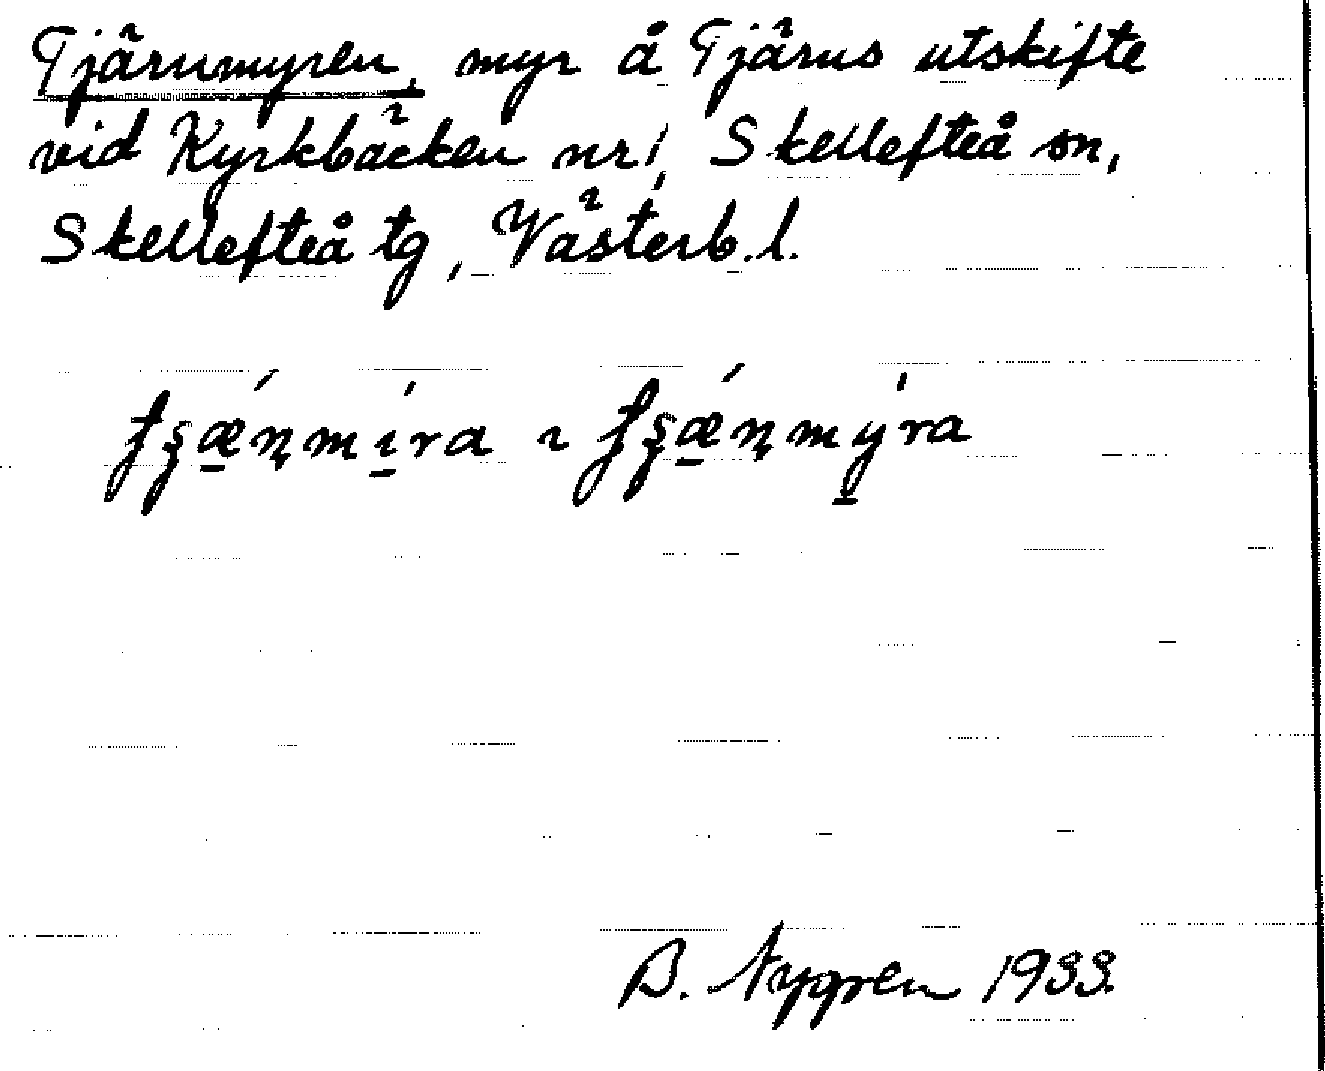 Tjärnmyren, myr å Tjärns utskifte
vid Kyrkbäcken nr 1, Skellefteå sn,
Skellefteå tg, Västerb. l.
B. Nygren 1933.